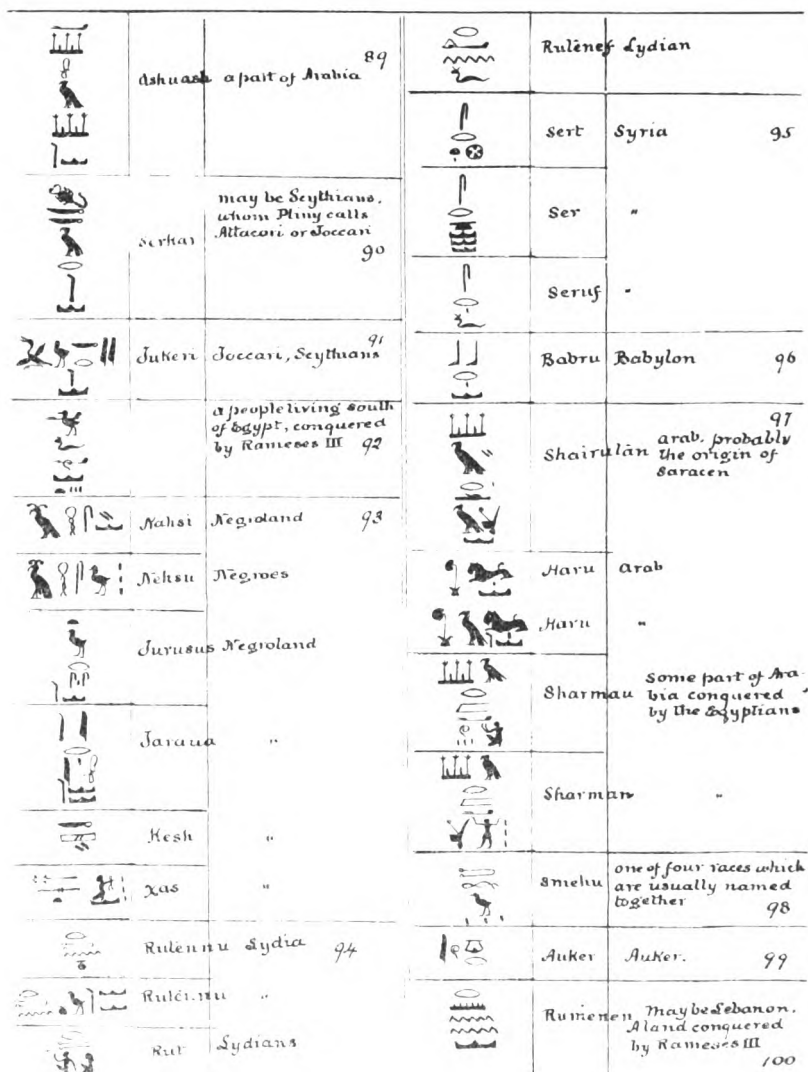 Ashuash a part of Arabia 89
Serkai may be Scythians,
whom Pliny calls
Attacori or Joccari
90
Jukeri Joccari, Scythians 91
a people living south
of Egypt, conquered
by Rameses III 92
Nahsi Negroland 93
Nehsu Negroes
Jurusus Negroland
Jaraua "
Kesh "
Xas "
Rutennu Lydia 94
Rutennu "
Rut Lydians
Rutenef Lydian
Sert Syria 95
Ser "
Seruf "
Babru Babylon 96
97
Shairutān arab, probably
the origin of
Saracen
Haru Arab
Haru "
Sharmau Some part of Ara-
bia conquered
by the Egyptians
Sharman "
Smehu one of four races which
are usually named
together 98
Auker Auker. 99
Rumenen May be Lebanon.
A land conquered
by Rameses III
100